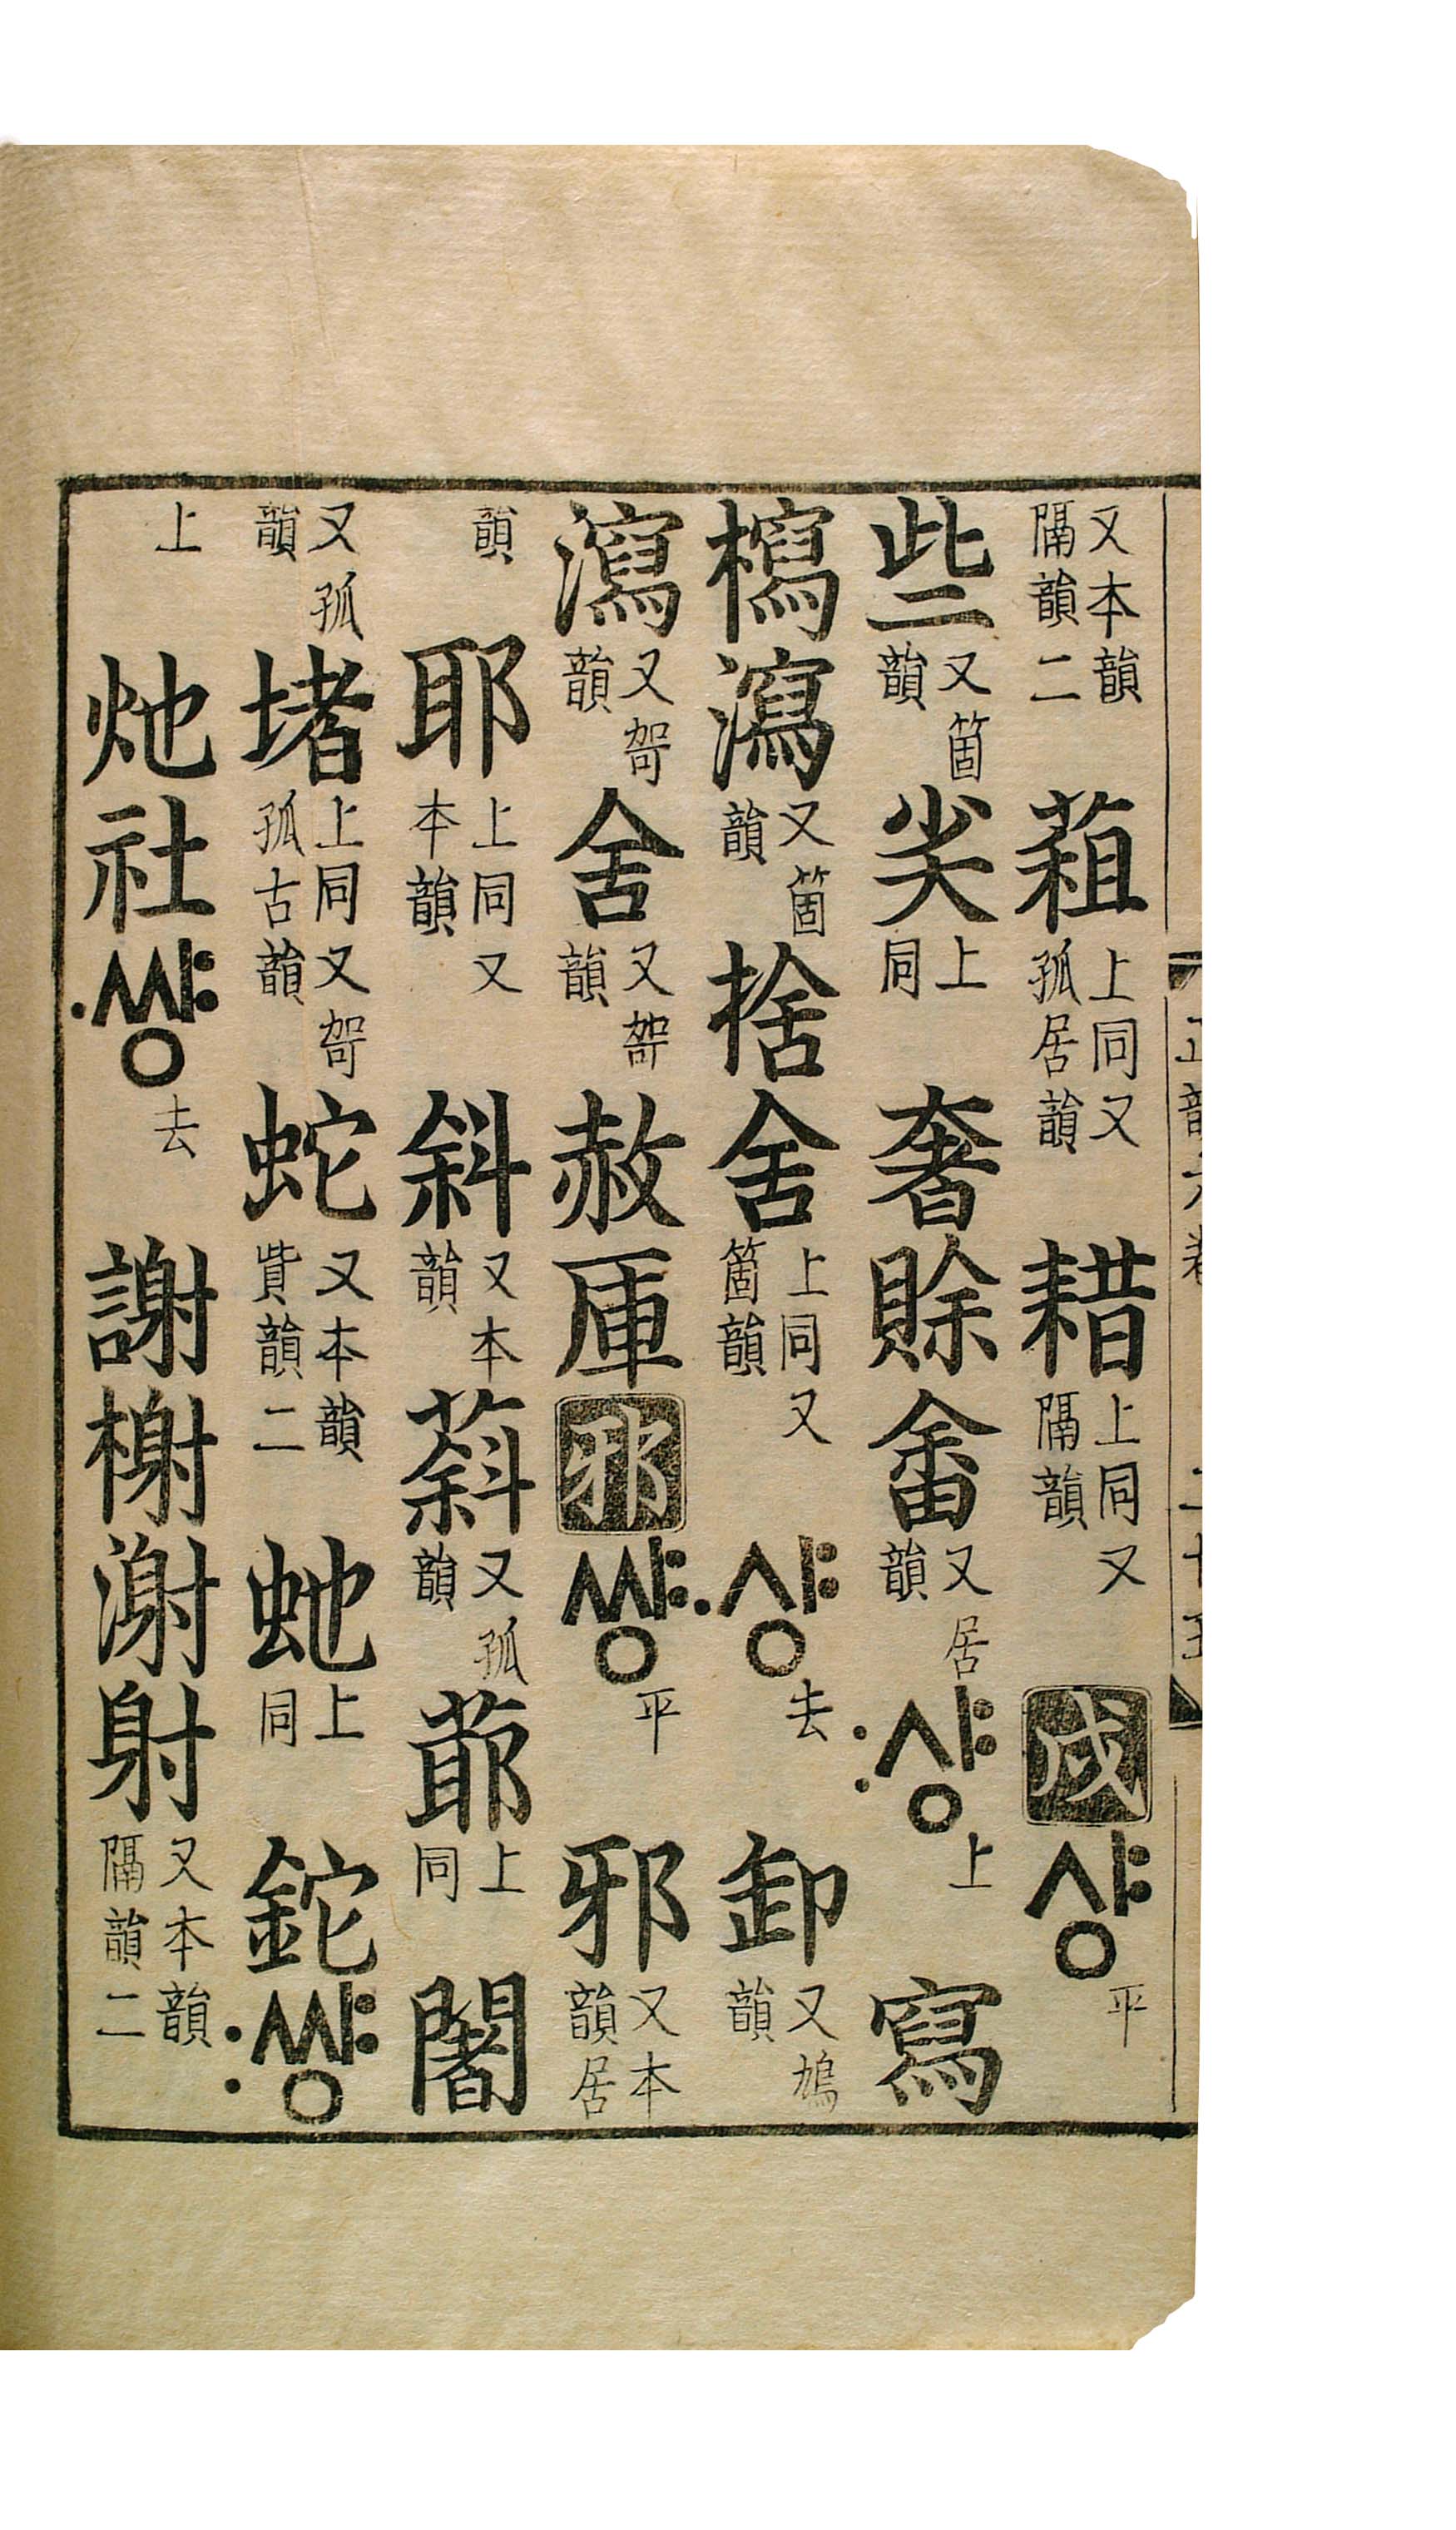 又本韻隔韻二蒩上同又孤居韻耤上同又隔韻戌샹平
些又箇韻尖上同奢賖畬又居韻샹上寫
瀉又箇韻捨舍上同又箇韻샹去卸又鳩韻
瀉又哿韻舍又哿韻赦厙邪썅平邪又本韻居
韻耶上同又本韻斜又本韻又孤韻上同闍
又孤韻堵上同又哿孤古韻蛇又本韻貲韻二虵上同鉈썅
上灺社썅去謝榭射又本韻隔韻二